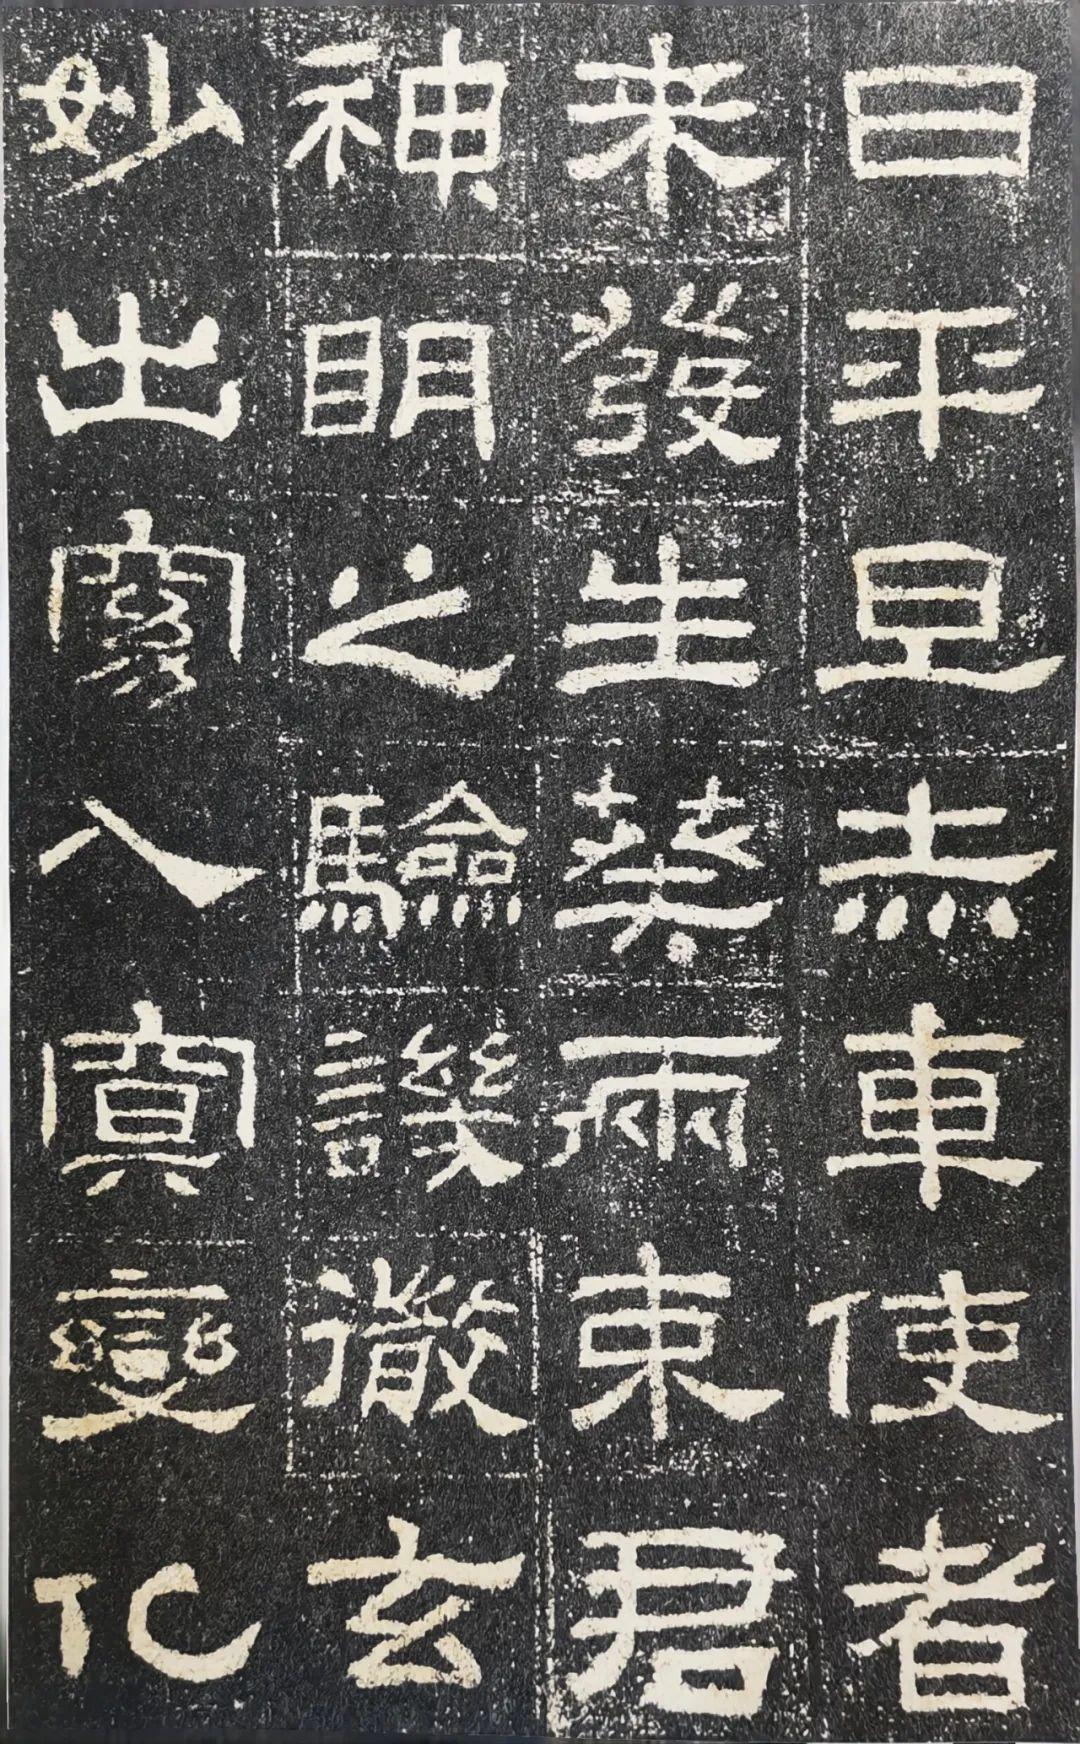 曰平旦赤車使者
来發生葵兩束君
神明之驗譏徹玄
妙出窈入冥變化